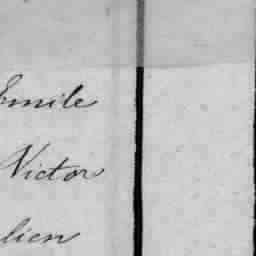 Emile
Victor
lien